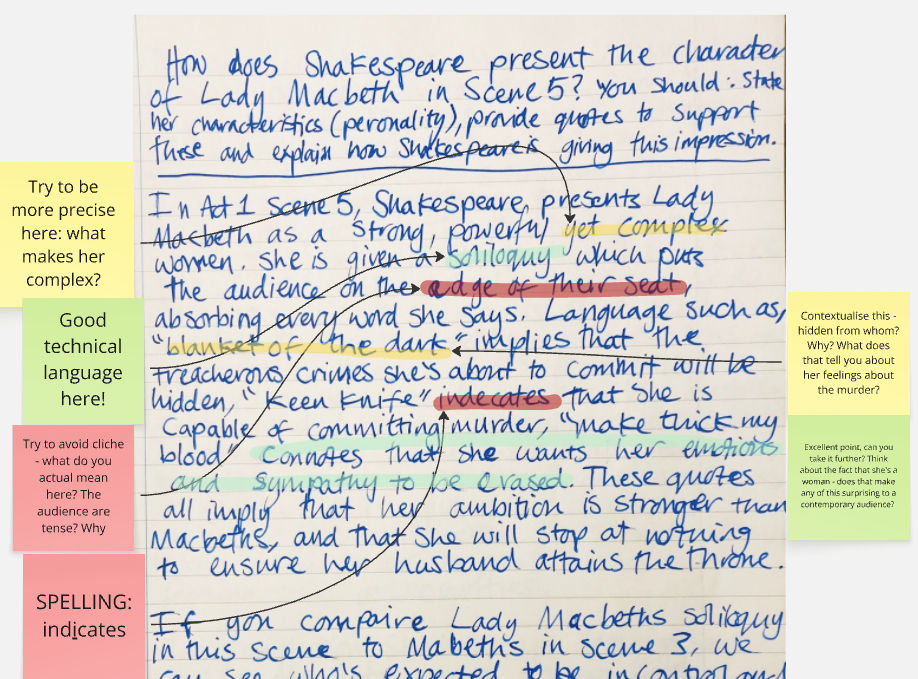 How does Shakespeare present the character
of Lady Macbeth in Scene 5? You should: State
her characteristics (peronality), provide quotes to support
these and explain how Shakespeare is giving this impression.
In Act 1 Scene 5, Shakespeare, presents Lady
Macbeth as a strong, powerful yet complex
women. She is given a soliloquy which puts
the audience on the edge of their seat,
absorbing every word she says. Language such as,
"blanket of the dark" implies that the
treacherous crimes she's about to commit will be
hidden, "Keen Knife" indecates that she is
capable of committing murder, "make thick my
blood" connotes that she wants her emotions
and sympathy to be erased. These quotes
all imply that her ambition is stronger than
Macbeths, and that she will stop at nothing
to ensure her husband attains the throne.
If you compaire Lady Macbeths soliloquy
in this scene to Mabeth's in scene 3, we
can see who's expected to be in control and
Try to be
more precise
here: what
makes her
complex?
Good
technical
language
here!
Try to avoid cliche
- what do you
actual mean
here? The
audience are
tense? Why
SPELLING:
indicates
Contextualise this -
hidden from whom?
Why? What does
that tell you about
her feelings about
the murder?
Excellent point, can you
take it further? Think
about the fact that she's a
woman - does that make
any of this surprising to a
contemporary audience?